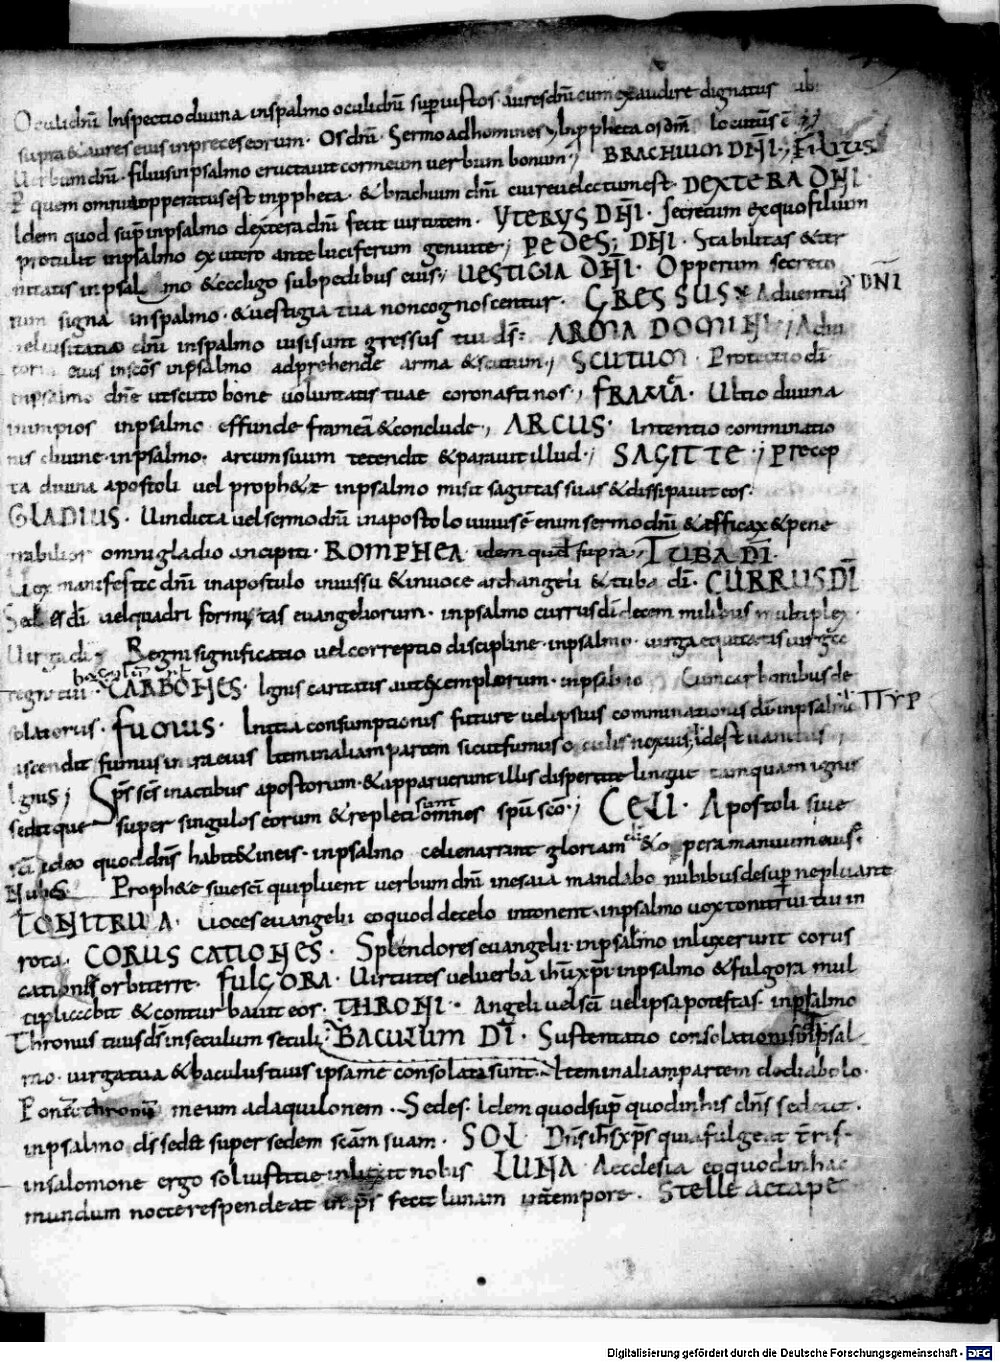 Oculi dñi Inspectio diuina inspalmo oculi dñi sup iustos aures dñi cum exaudire dignatus ubi
supra & aures eius inpreces eorum · Os dñi · Sermo ad homines Inppheta os dñi locutus ē
Uerbum dñi · filius inpsalmo eructauit cor meum uerbum bonum BRACHIUM DÑI · Filius
P quem omnia opperatus est inppheta · & brachium dñi cui reuelectum est · DEXTERA DÑI ·
Idem quod sup inpsalmo dextera dñi fecit uirtutem · UTERUS DÑI · Secretum ex quo filium
protulit inpsalmo ex utero ante luciferum genui te; PEDES; DÑI · Stabilitas &ter
nitatis inpsalmo & celigo sub pedibus eius; UESTIGIA DÑI · Opperum secreto
rum signa inpsalmo · & uestigia tua non cognoscentur · GRESSUS Aduentus DÑI
uel uisitatio dñi inpsalmo uisi sunt gressus tui ds · ARMA DOMINI Adiu
toria eius inscōs inpsalmo adprehende arma & scutum; SCUTUM · Protectio di
inpsalmo dñe ut scuto bone uoluntatis tuae coronasti nos; FRAMEA · Ultio diuina
inimpios inpsalmo effunde frameā & conclude; ARCUS · Intentio comminatio
nis diuine · inpsalmo · arcum suum tetendit & parauit illud; SAGITTE · Precep
ta diuina apostoli uel proph&ae inpsalmo misit sagittas suas & dissipauit eos ·
GLADIUS · Uindicta uel sermo dñi inapostolo uiuus ē enim sermo dñi & efficax & pene
trabilior omni gladio ancipiti · ROMPHEA · idem quod supra, TUBA DI ·
Uox manifeste dñi inapostolo iniussu & inuoce archangeli & tuba di · CURRUS DI
Sedes di uel quadri formitas euangeliorum · inpsalmo currus di decem milibus multiplex ·
Uirga di Regni significatio uel correptio discipline · inpsalmo · uirga equitatis uirga
regni tui · CARBONES · Ignis caritatis aut exemplorum · inpsalmo Cum carbonibus de
solatorius · fumus · Initia consumptionis future uel ipsius comminationis di inpsalmo
ascendit fumus in ira eius Item in aliam partem sicut fumus oculis noxius, id est uanitas
Ignis; Sps scs inactibus apostorum · & apparuerunt illis dispertite lingue tamquam ignis
sedit que super singulos eorum & repleti sunt omnes spū scō; CELI · Apostoli siue
sci ideo quod dñs habit& ineis · inpsalmo celi enarrant gloriam di & opera manuum eius
Nubes Proph&e siue sci qui pluent uerbum dñi inesaia mandabo nubibus desup ne pluant
TONITRUA · Uoces euangelii eo quod de celo intonent inpsalmo uox tonitrui tui in
rota · CORUSCATIONES · Splendores euangelii · inpsalmo inluxerunt corus
cationes orbi terre · FULGORA · Uirtutes uel uerba ihu xpi inpsalmo & fulgora mul
tiplicabit & conturbauit eos · THRONI · Angeli uel sci uel ipsa potestas · inpsalmo
Thronus tuus ds inseculum seculi · BACULUM DI · Sustentatio consolationis inpsal
mo · uirga tua & baculus tuus ipsa me consolata sunt · Item in aliam partem de diabolo ·
Ponā thronū meum ad aquilonem · Sedes · Idem quod sup quod inhis dñs sedeat ·
inpsalmo ds sedet super sedem scām suam · SOL · Dñs ihs xps quia fulgeat
insalomone ergo sol iustitie nobis LUNA · Aecclesia eo quod in hac
mundum nocte respendeat fecit lunam tempore · Stelle